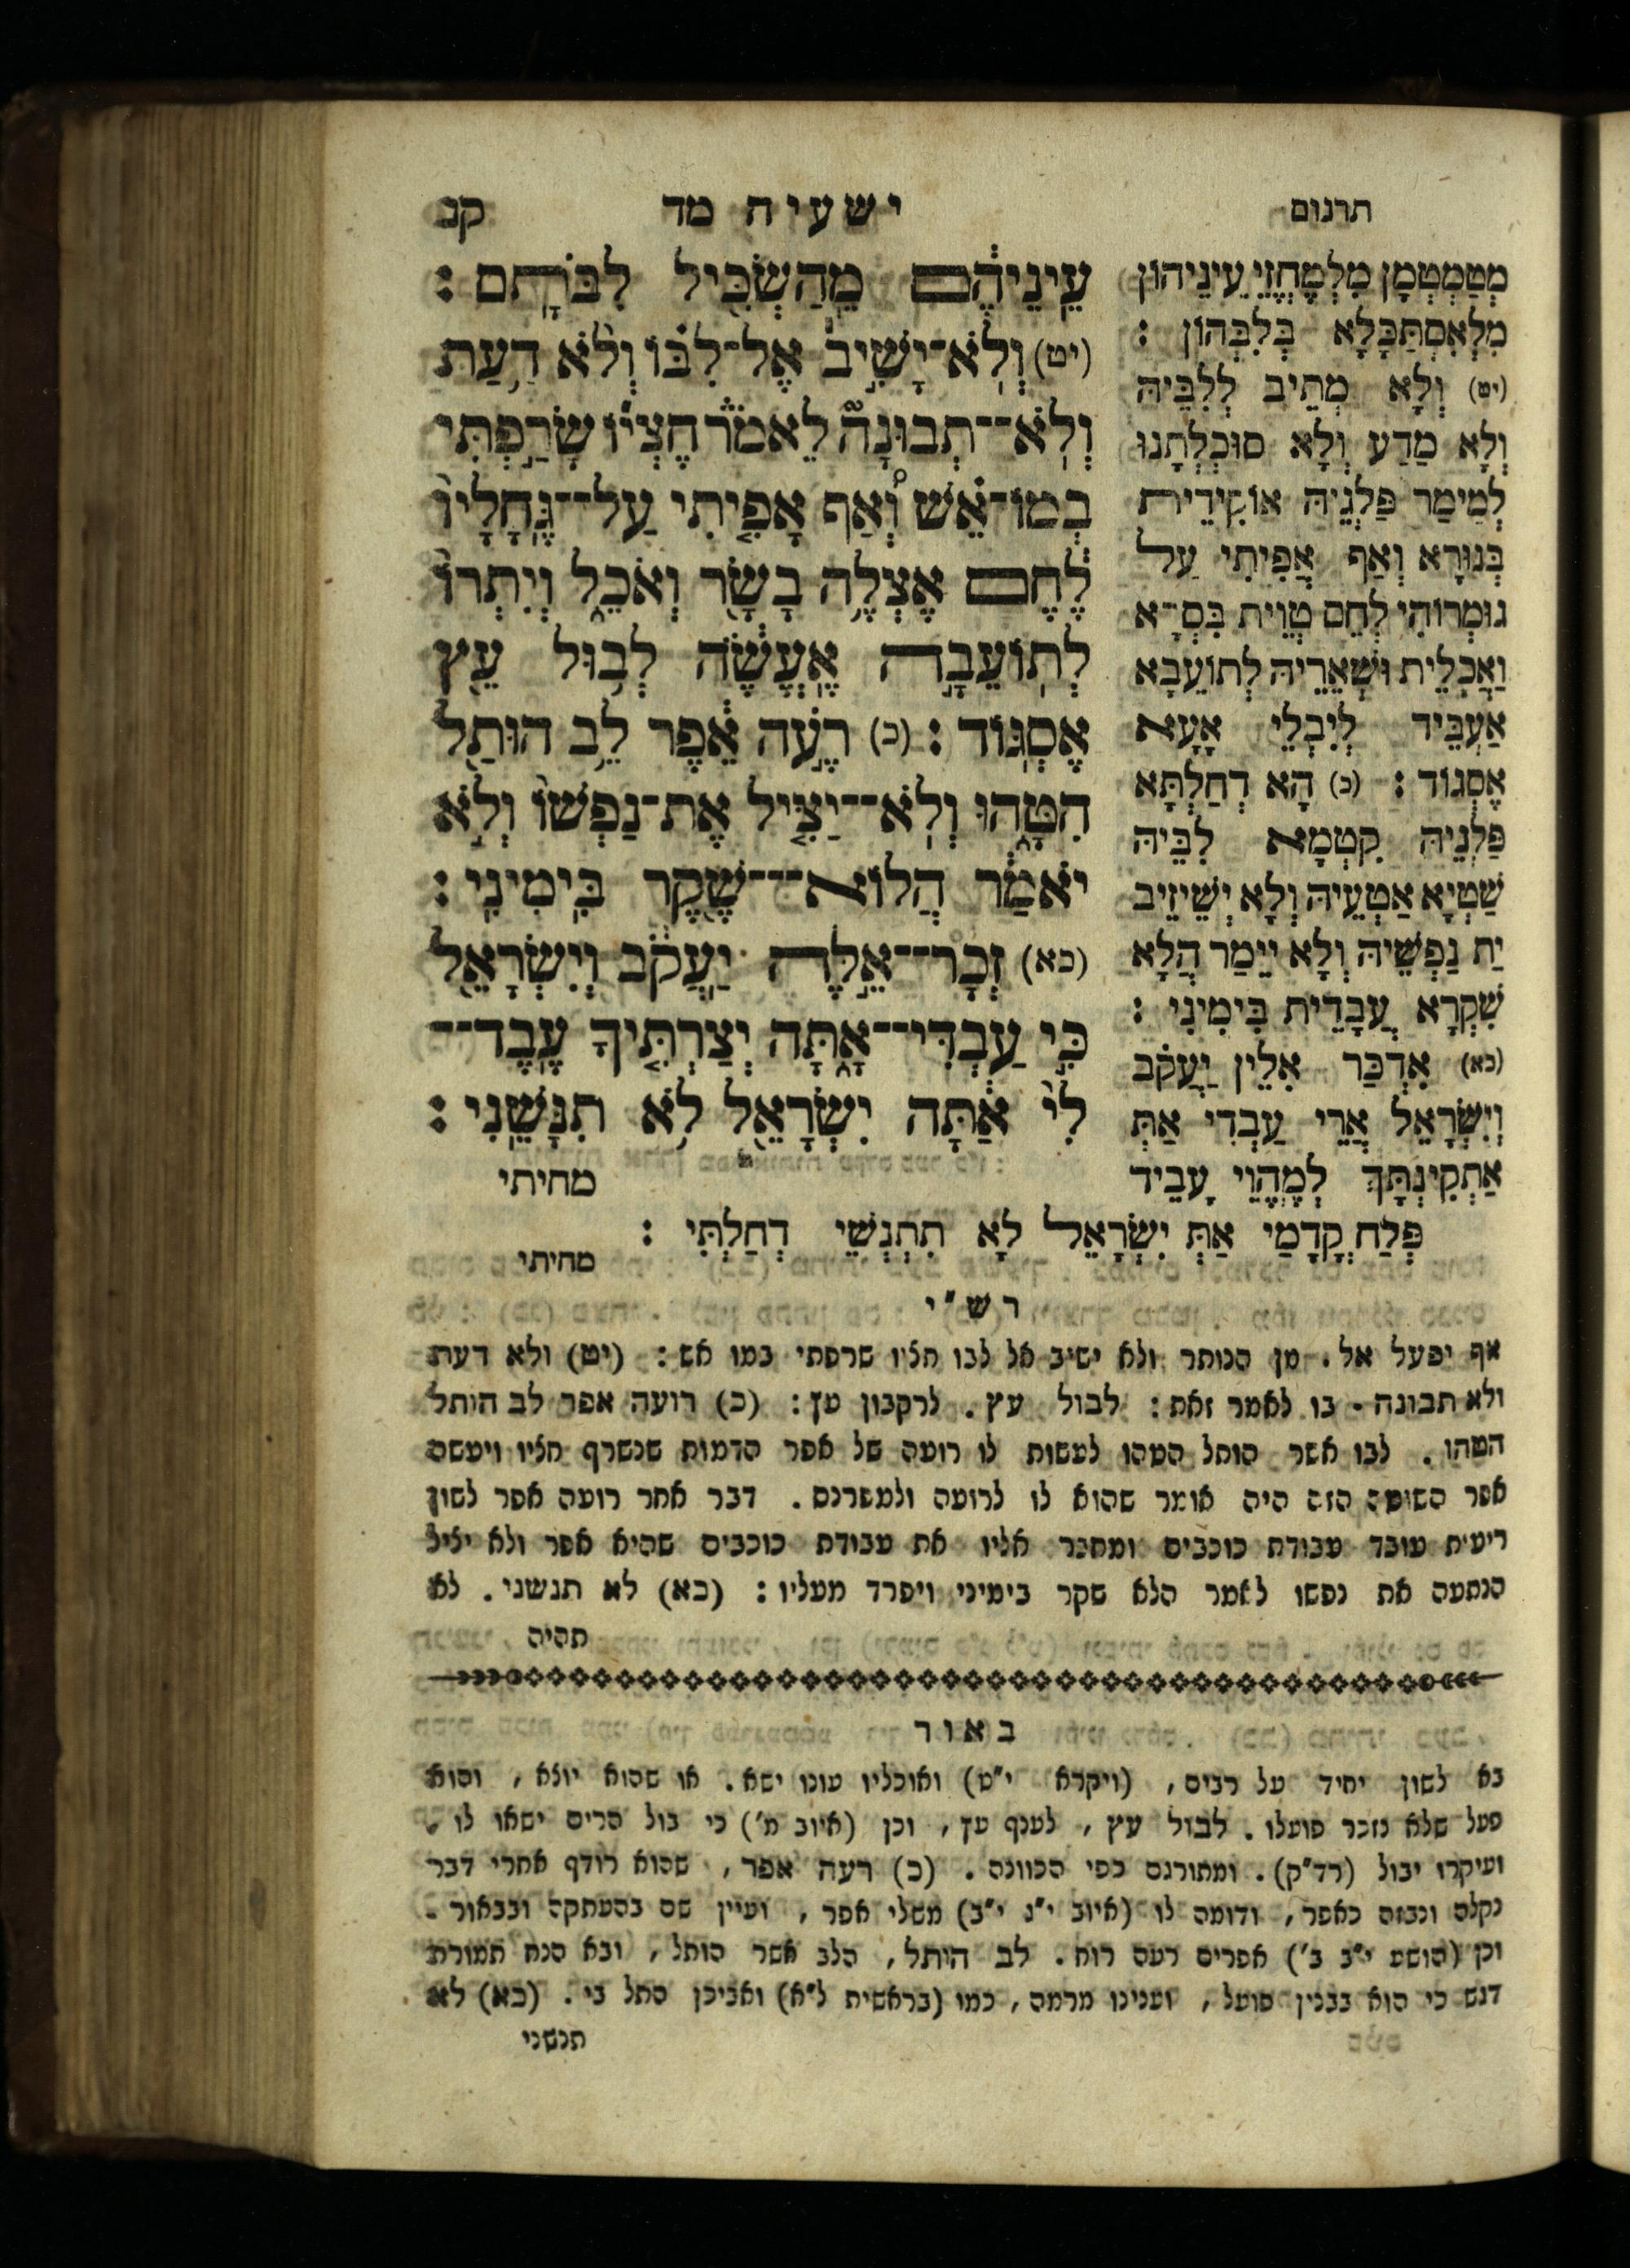 תרגום
ישעיה מד
קנ
עֵֽינֵיהֶ֔ם מֵֽהַשְׂכִּ֖יל לִבֹּתָֽם :
(יט) וְלֹֽא־יָשִׁ֣יב אֶל־לִבּ֗וֹ וְלֹ֨א דַ֥עַת
וְלֹֽא־תְבוּנָה֮ לֵאמֹר֒ חֶצְי֞וֹ שָׂרַ֣פְתִּי
בְמוֹ־אֵ֗שׁ וְ֠אַף אָפִ֤יתִי עַל־גֶּֽחָלָיו֙
לֶ֔חֶם אֶצְלֶ֥ה בָשָׂ֖ר וְאֹכֵ֑ל וְיִתְרוֹ֙
לְתֽוֹעֵבָ֣ה אֶֽעֱשֶׂ֔ה לְב֥וּל עֵ֖ץ
אֶסְגּֽוֹד : (כ) רֹעֶ֣ה אֵ֔פֶר לֵ֥ב הוּתַ֖ל
הִטָּ֑הוּ וְלֹֽא־יַצִּ֤יל אֶת־נַפְשׁוֹ֙ וְלֹ֣א
יֹאמַ֔ר הֲל֥וֹא־שֶׁ֖קֶר בִּֽימִינִֽי :
(כא) זְכָר־אֵ֣לֶּה יַֽעֲקֹ֔ב וְיִשְׂרָאֵ֖ל
כִּ֣י עַבְדִּי־אָ֑תָּה יְצַרְתִּ֤יךָ עֶֽבֶד־
לִי֙ אַ֔תָּה יִשְׂרָאֵ֖ל לֹ֥א תִנָּשֵֽׁנִי :
מחיתי
מְטַמְטְמָן מִלְמֶחֱזֵי עֵינֵיהוֹן
מִלְאִסְתַּכָּלָא בְּלִבְּהוֹן :
(יט) וְלָא מְתֵיב לְלִבֵּיהּ
וְלָא מַדַע וְלָא סוּכְלְתָנוּ
לְמֵימַר פַּלְגֵיהּ אוֹקִידֵית
בְּנוּרָא וְאַף אֲפֵיתִי עַל
גוּמְרוֹהִי לְחֵם טְוֵית בִּסְרָא
וַאֲכָלֵית וּשְׁאֵרֵיהּ לְתוֹעֵבָא
אַעְבֵּיד לְיִבְלֵי אָעָא
אֶסְגוֹד : (כ) הָא דְחַלְתָּא
פַּלְגֵיהּ קִטְמָא לִבֵּיהּ
שַׁטְיָא אַטְעֵיהּ וְלָא יְשֵׁיזֵיב
יַת נַפְשֵׁיהּ וְלָא יֵימַר הֲלָא
שִׁקְרָא עֲבָדֵית בִּימִינִי :
(כא) אִדְכַּר אִלֵין יַעֲקֹב
וְיִשְׂרָאֵל אֲרֵי עַבְדִי אַתְּ
אַתְקִינְתָּךְ לְמֶהֱוֵי עָבֵיד
פְּלַח קֳדָמַי אַתְּ יִשְׂרָאֵל לָא תִתְנְשֵׁי דְחַלְתִּי :
מחיתי
רש״י
אף יפעל אל. מן הנותר ולא ישיב אל לבו חליו שרפתי במו אש : (יט) ולא דעת
ולא תבונה. בו לאמר זאת : לבול עץ. לרקבון עץ : (כ) רועה אפר לב הותל
הטהו. לבו אשר הותל הטהו לעשות לו רועה של אפר הדמות שנשרף חליו ויעשה
אפר השוטה הזה היה אומר שהוא לו לרועה ולמפרנס. דבר אחר רועה אפר לשון
ריעית עובד עבודת כוכבים ומתחבר אליו את עבודת כוכבים שהיא אפר ולא יציל
הנתעה את נפשו לאמר הלא שקר בימיני ויפרד מעליו : (כא) לא תנשני. לא
תהיה
באור
בא לשון יחיד על רבים, (ויקרא י״ט) ואוכליו עונו ישא. או שהוא יוצא, והוא
פעל שלא נזכר פועלו. לבול עץ, לענף עץ, וכן (איוב מ׳) כי בול הרים ישאו לו.
ועיקרו יבול (רד״ק). ומתורגם כפי הכוונה. (כ) רעה אפר, שהוא רודף אחרי דבר
נקלה ונבזה כאפר, ודומה לו (איוב י״ג י״ב) משלי אפר, ועיין שם בהעתקה ובבאור.
וכן (הושע י״ב ב׳) אפרים רעה רוח. לב הותל, הלב אשר הותל, ובא הנח תמורת
דגש כי הוא בבנין פועל, וענינו מרמה, כמו (בראשית ל״א) ואביכן התל בי. (כא) לא
תנשני